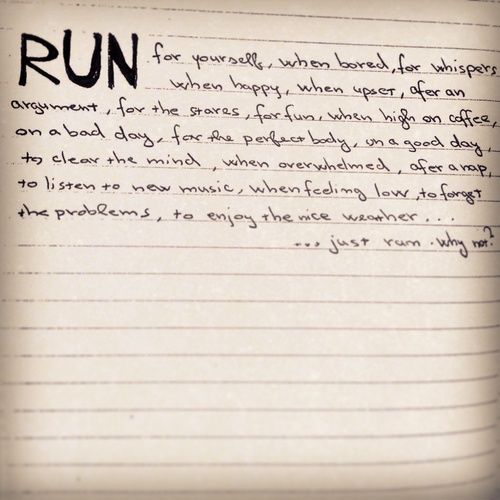 RUN for yourself, when bored, for whispers
when happy, when upset, afer an
argument, for the stares, for fun, when high on coffee,
on a bad day, for the perfect body, on a good day,
to clear the mind, when overwhelmed, afer a nap,
to listen to new music, when feeling low, to forget
the problems, to enjoy the nice weather...
... just run. why not?